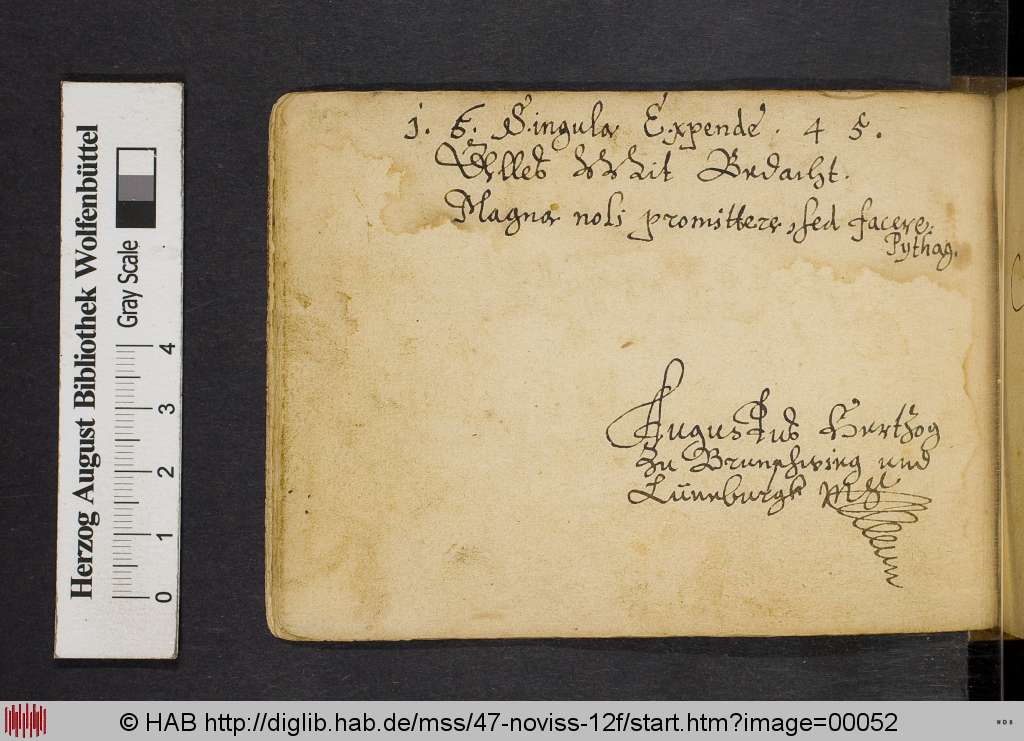 1. 6. Singula Expende. 4 5.
Alles Mit Bedacht.
Magna noli promittere, sed facere.
Pythag.
Augustus Hertzog
Zu Brunschwieg und
Lüneburgk mp
Herzog August Bibliothek Wolfenbüttel
Gray Scale
0 1 2 3 4
© HAB http://diglib.hab.de/mss/47-noviss-12f/start.htm?image=00052
WDB